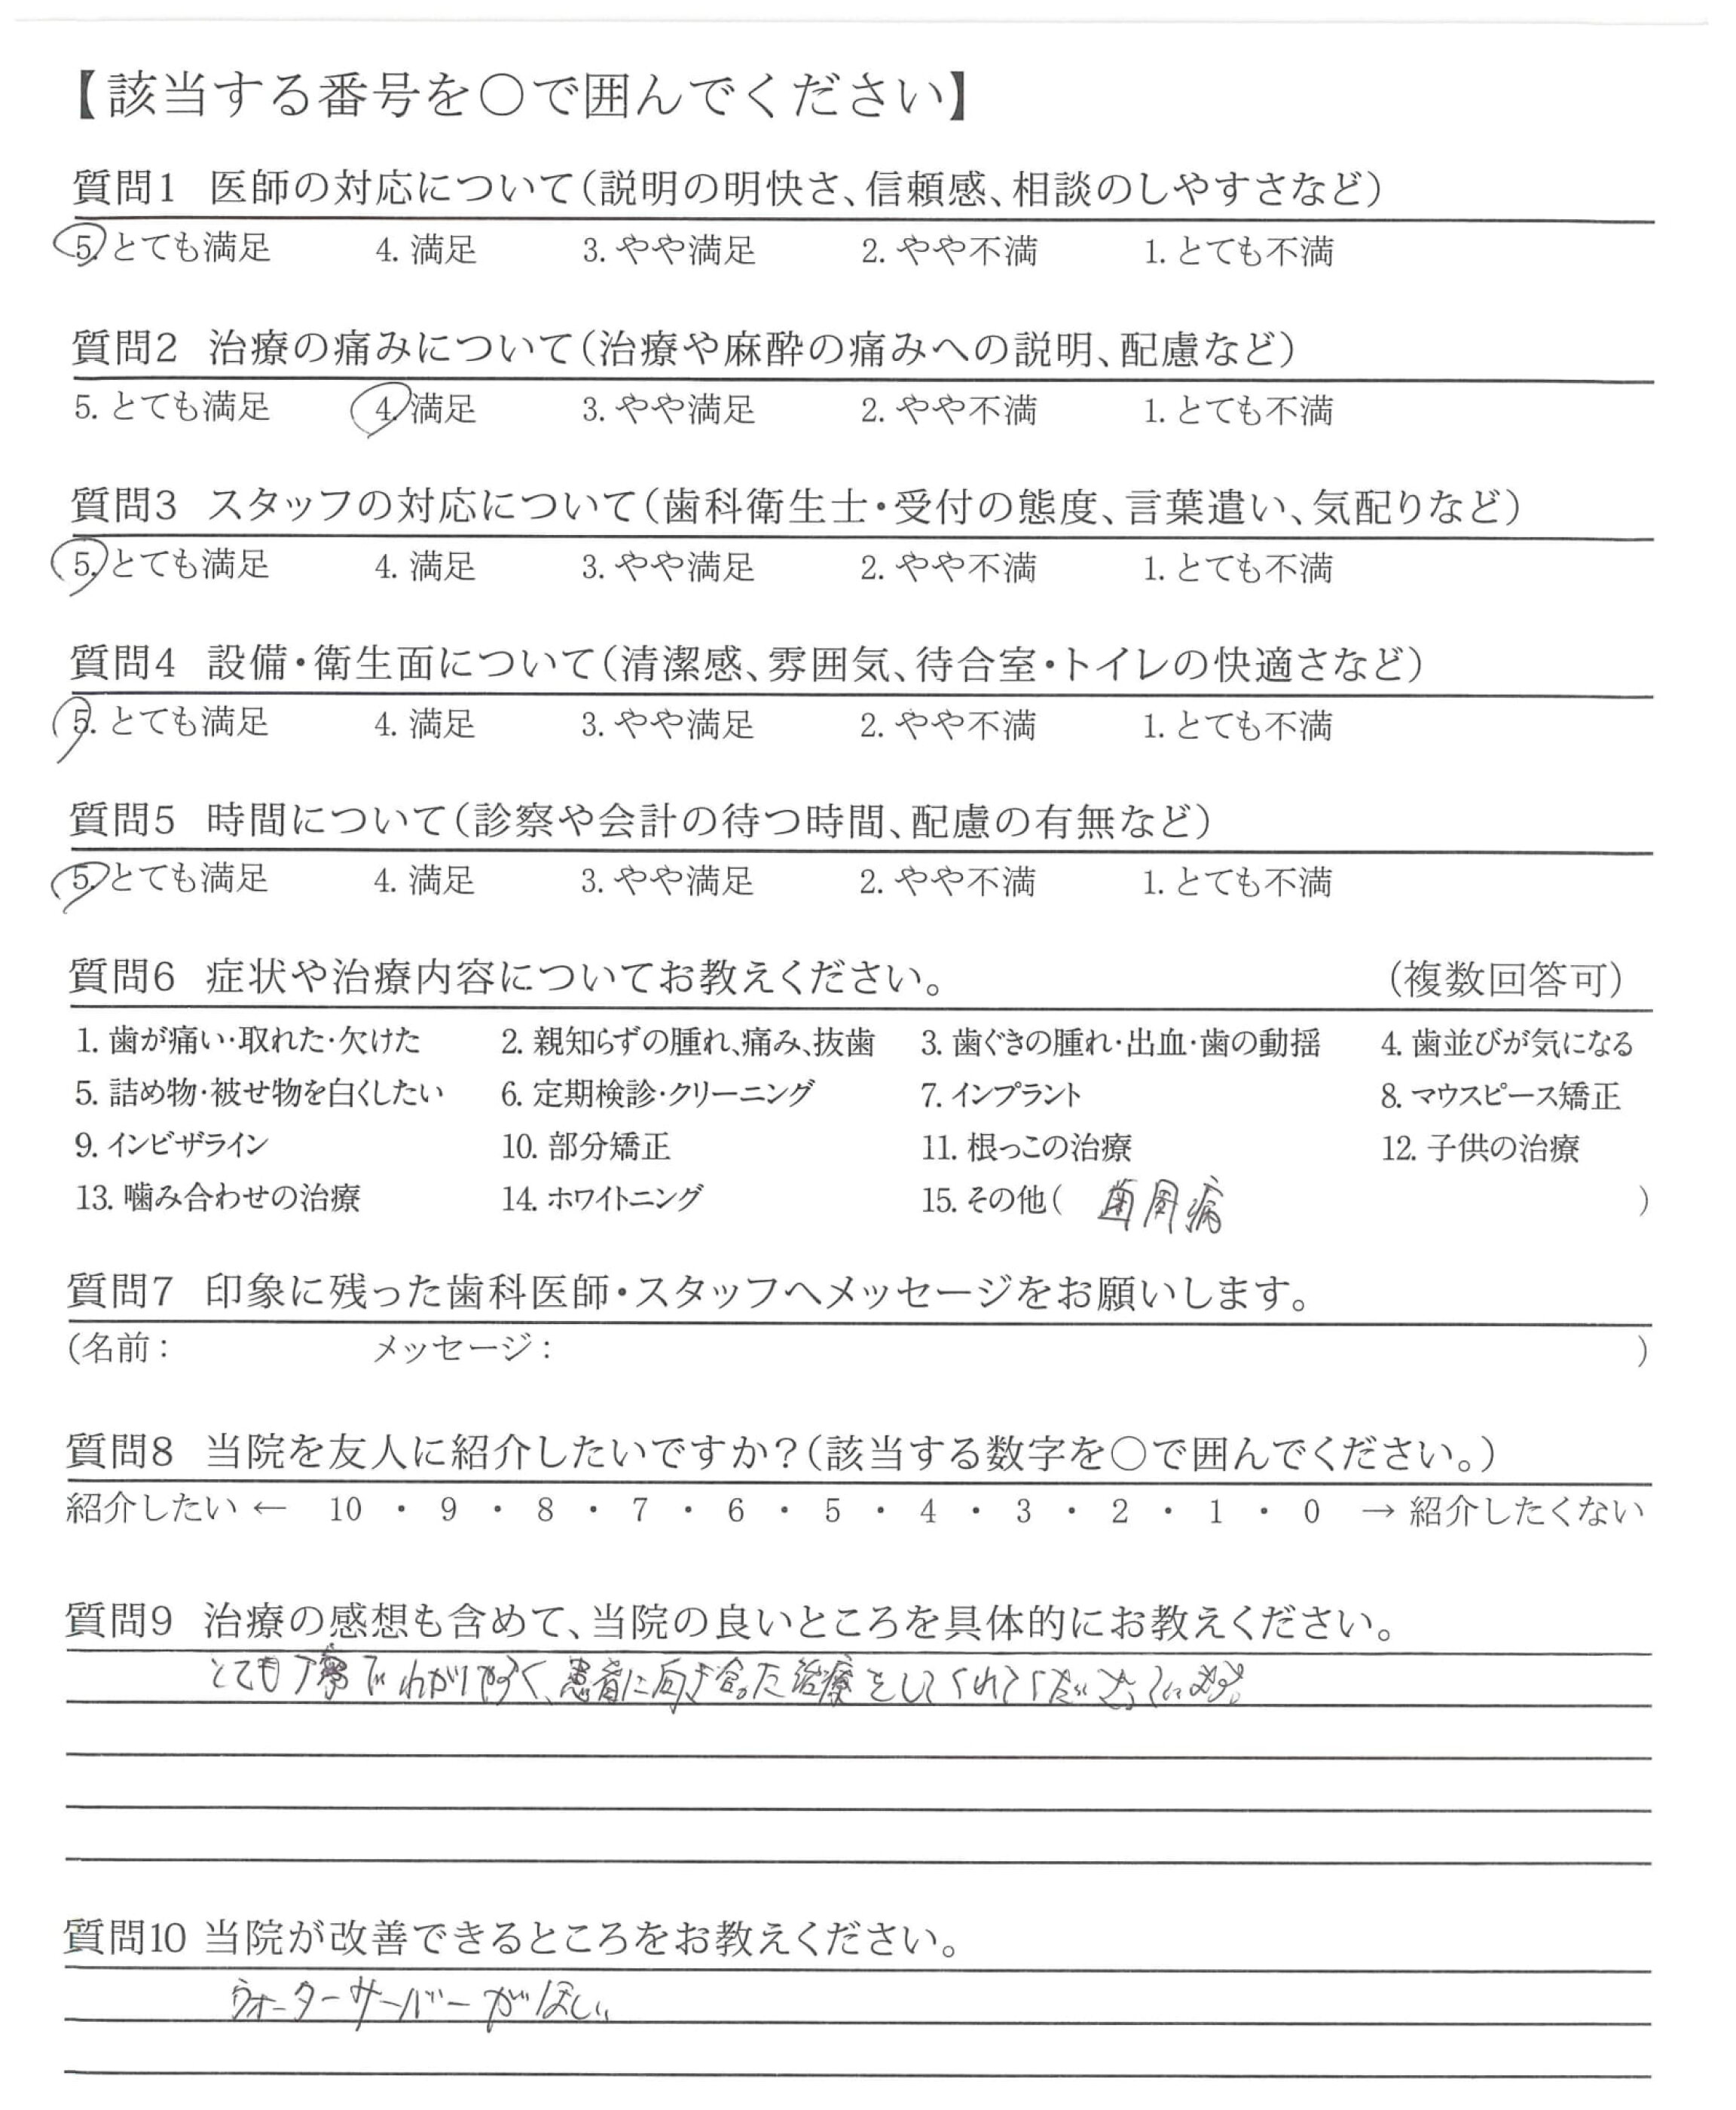 【該当する番号を○で囲んでください】
質問1 医師の対応について(説明の明快さ、信頼感、相談のしやすさなど)
5. とても満足 4. 満足 3. やや満足 2. やや不満 1. とても不満
質問2 治療の痛みについて(治療や麻酔の痛みへの説明、配慮など)
5. とても満足 4. 満足 3. やや満足 2. やや不満 1. とても不満
質問3 スタッフの対応について(歯科衛生士・受付の態度、言葉遣い、気配りなど)
5. とても満足 4. 満足 3. やや満足 2. やや不満 1. とても不満
質問4 設備・衛生面について(清潔感、雰囲気、待合室・トイレの快適さなど)
5. とても満足 4. 満足 3. やや満足 2. やや不満 1. とても不満
質問5 時間について(診察や会計の待つ時間、配慮の有無など)
5. とても満足 4. 満足 3. やや満足 2. やや不満 1. とても不満
質問6 症状や治療内容についてお教えください。 (複数回答可)
1. 歯が痛い・取れた・欠けた 2. 親知らずの腫れ、痛み、抜歯 3. 歯ぐきの腫れ・出血・歯の動揺 4. 歯並びが気になる
5. 詰め物・被せ物を白くしたい 6. 定期検診・クリーニング 7. インプラント 8. マウスピース矯正
9. インビザライン 10. 部分矯正 11. 根っこの治療 12. 子供の治療
13. 噛み合わせの治療 14. ホワイトニング 15. その他( 歯周病 )
質問7 印象に残った歯科医師・スタッフへメッセージをお願いします。
(名前: メッセージ: )
質問8 当院を友人に紹介したいですか?(該当する数字を○で囲んでください。)
紹介したい ← 10 ・ 9 ・ 8 ・ 7 ・ 6 ・ 5 ・ 4 ・ 3 ・ 2 ・ 1 ・ 0 → 紹介したくない
質問9 治療の感想も含めて、当院の良いところを具体的にお教えください。
とても丁寧でわかりやすく、患者に向き合った治療をしてくれてくださっています。
質問10 当院が改善できるところをお教えください。
ウォーターサーバーがほしい